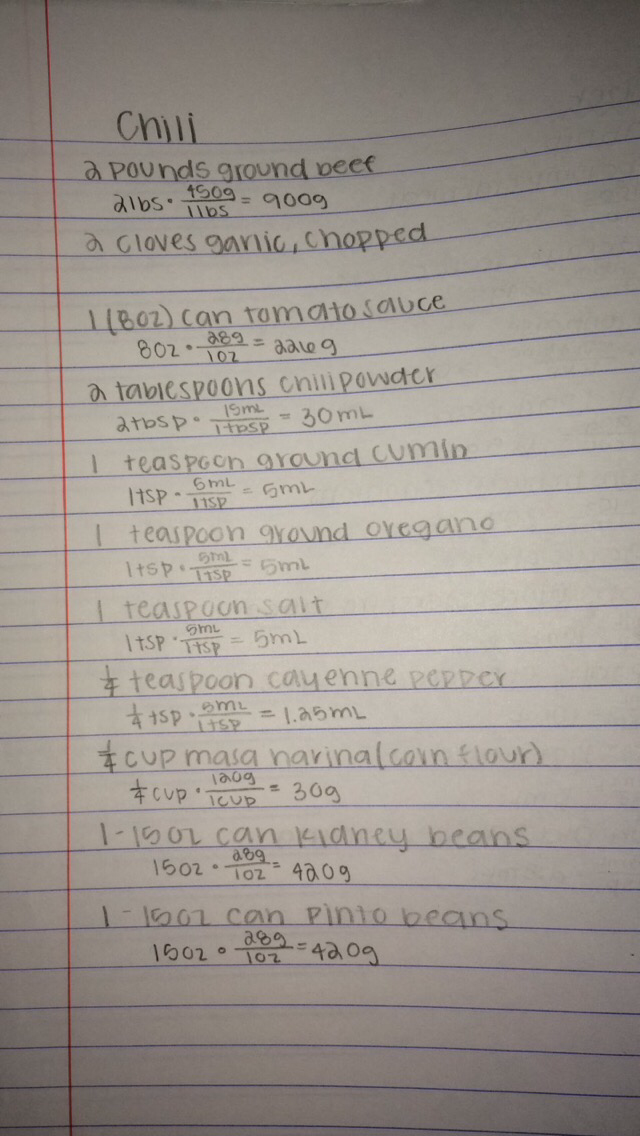 Chili
2 pounds ground beef
2lbs · 450g/1lbs = 900g
2 cloves garlic, chopped
1 (8oz) can tomato sauce
8oz · 28g/1oz = 226g
2 tablespoons chili powder
2tbsp · 15mL/1tbsp = 30mL
1 teaspoon ground cumin
1tsp · 5mL/1tsp = 5mL
1 teaspoon ground oregano
1tsp · 5mL/1tsp = 5mL
1 teaspoon salt
1tsp · 5mL/1tsp = 5mL
1/4 teaspoon cayenne pepper
1/4 tsp · 5mL/1tsp = 1.25mL
1/4 cup masa harina (corn flour)
1/4 cup · 120g/1cup = 30g
1-15oz can kidney beans
15oz · 28g/1oz = 420g
1-15oz can pinto beans
15oz · 28g/1oz = 420g